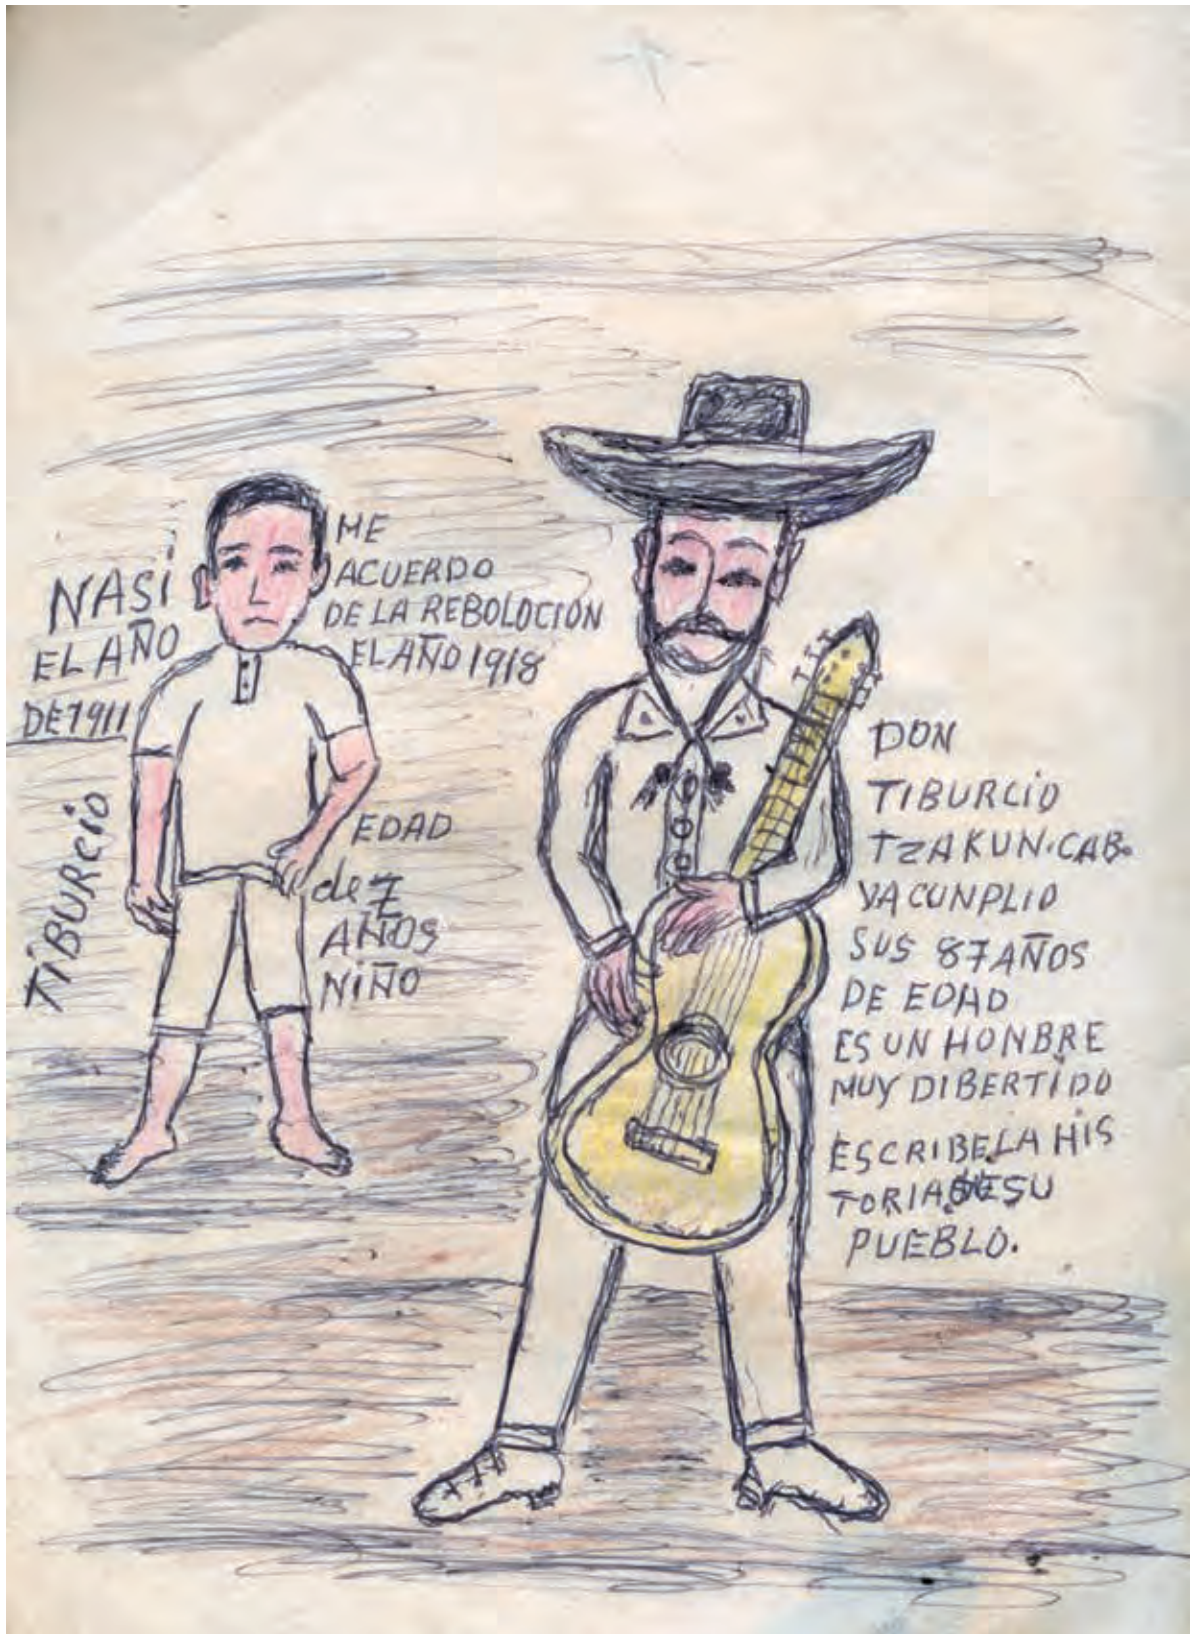 NASi
EL AÑO
DE 1911
TiBURCiO
ME
ACUERDO
DE LA REBOLOCION
EL AÑO 1918
EDAD
de 7
AÑOS
NiÑO
DON
TIBURCiO
TZAKUN.CAB.
YA CUNPLIO
SUS 87 AÑOS
DE EDAD
ES UN HONBRE
MUY DIBERTiDO
ESCRIBE LA HiS
TORIA DE SU
PUEBLO.